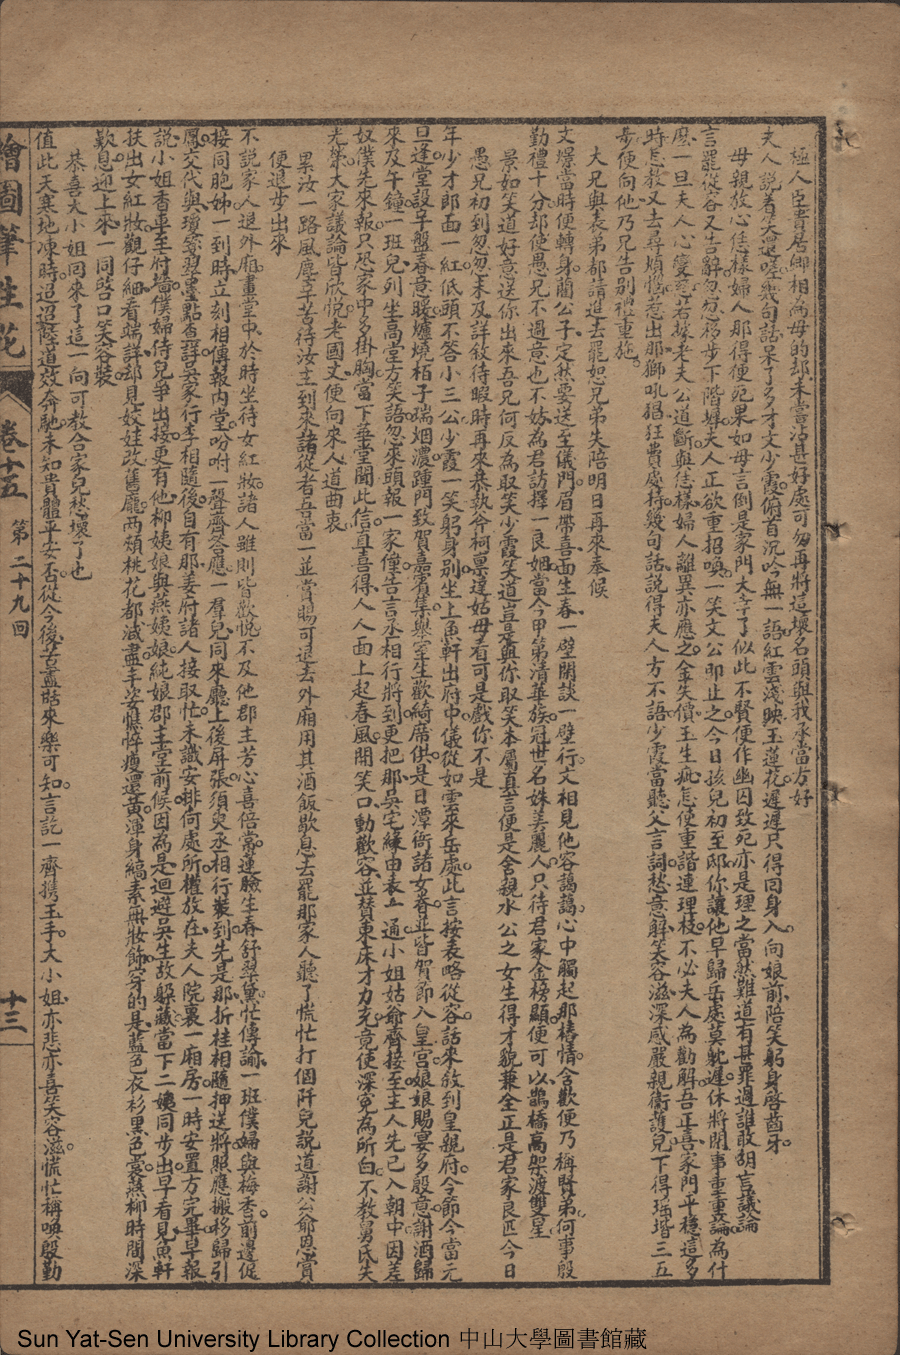 極人臣書居鄉相為母的却未嘗沾甚好處可匆再將這壞名頭與我承當方好
夫人說着笑還嗟幾句話呆了多才文少霞俯首沉吟無一語紅雲淺映玉蓮花遲遲只得回身入向娘前陪笑躬身啓齒牙
母親放心佳樣婦人那得便宛果如母言倒是家門大幸了似此不賢便作幽囚致死亦是理之當然難道有甚罪過誰敢胡言議論
言罷從容又告辭忽忽移步下階墀夫人正欲重招喚一笑文公卽止之今日孩兒初至邸你讓他早歸岳處莫耽遲休將閒事重重論為什
麽一旦夫人心變若據老夫公道斷與佳樣婦人離異亦應之金失價玉生疵怎使重諧連理枝不必夫人為勸解吾正喜家門平穩這多
時怎教又去尋煩惱惹出那獅吼猖狂費處持幾句話說得夫人方不語少霞當聽父言詞愁意解笑容滋深感嚴親衛護兒下得瑤堦三五
步便向他乃兄告別禮重施
大兄與表弟都請進去罷恕兄弟失陪明日再來奉候
文爆當時便轉身蘭公子定然要送至儀門眉帶喜面生春一壁閑談一壁行文相見他容藹藹心中觸起那樁情含歡便乃稱賢弟何事殷
勤禮十分却使愚兄不過意也不妨為君訪擇一良姻當今甲第清華族冠世名姝美麗人只待君家金榜顯便可以鵲橋高架渡雙星
景如笑道好意送你出來吾兄何反為取笑少霞笑道豈是與你取笑本屬真言便是舍親水公之女生得才貌兼全正是君家良匹今日
愚兄初到忽忽未及詳敘待暇時再來恭執斧柯稟達姑母看可是戲你不是
年少才郎面一紅低頭不答小三公少霞一笑躬身別坐上魚軒出府中儀從如雲來岳處此言按表略從容話來敘到皇親府今節今當元
旦逢堂設辛盤春意暖爐燒栢子瑞烟濃踵門致賀嘉賓集舉室生歡綺席供是日潭衙諸女眷並皆賀節入皇宮娘娘賜宴多殷意謝酒歸
來及午鐘一班兒列坐高堂方笑語忽來頭報一家僮告言丞相行將到更把那吳宅緣由表一通小姐姑爺齊接至主人先已入朝中因差
奴僕先來報只恐家中多掛胸當下華堂聞此信真喜得人人面上起春風開笑口動歡容並贊東床才力充竟使深寃為所白不教舅氏失
光榮大家議論皆欣悅老國丈便向來人道曲衷
累汝一路風塵辛苦待汝主到來諸從者吾當一並賞賜可退去外廂用其酒飯歇息去罷那家人聽了慌忙打個阡兒說道謝公爺恩賞
便退步出來
不說家人退外廂畫堂中於時坐待女紅妝諸人雖則皆歡悅不及他郡主芳心喜倍常蓮臉生春舒翠黛忙傳諭一班僕婦與梅香前邊促
接同胞姊一到時立刻相傳報內堂吩咐一聲齊答應一羣兒同來廳上後屏張須臾丞相行裝到先是那折桂相隨押送將照應搬移歸引
鳳交代與瓊翠墨點查詳吳家行李相隨後自有那姜府諸人接取忙未識安排何處所權放在夫人院裏一廂房一時安置方完畢早報
說小姐香車至府墻僕婦侍兒爭出接更有他柳姨娘與燕姨娘純娘郡主堂前候因為是迴避吳生故躲藏當下二姨同步出早看見魚軒
扶出女紅妝觀仔細看端詳却見妓娃改舊龐兩頰桃花都減盡丰姿憔悴瘦還黃渾身縞素無妝飾穿的是藍色衣衫黑色裳蕉柳時間深
歎息迎上來一同啓口笑容裝
恭喜大小姐同來了這一向可教合家兒愁壞了也
值此天寒地凍時迢迢陸道效奔馳未知貴體平安否從今後苦盡甜來樂可知言訖一齊攜玉手大小姐亦悲亦喜笑容滋慌忙稱喚殷勤
繪圖筆生花
卷十五
第二十九回
十三
Sun Yat-Sen University Library Collection 中山大學圖書館藏